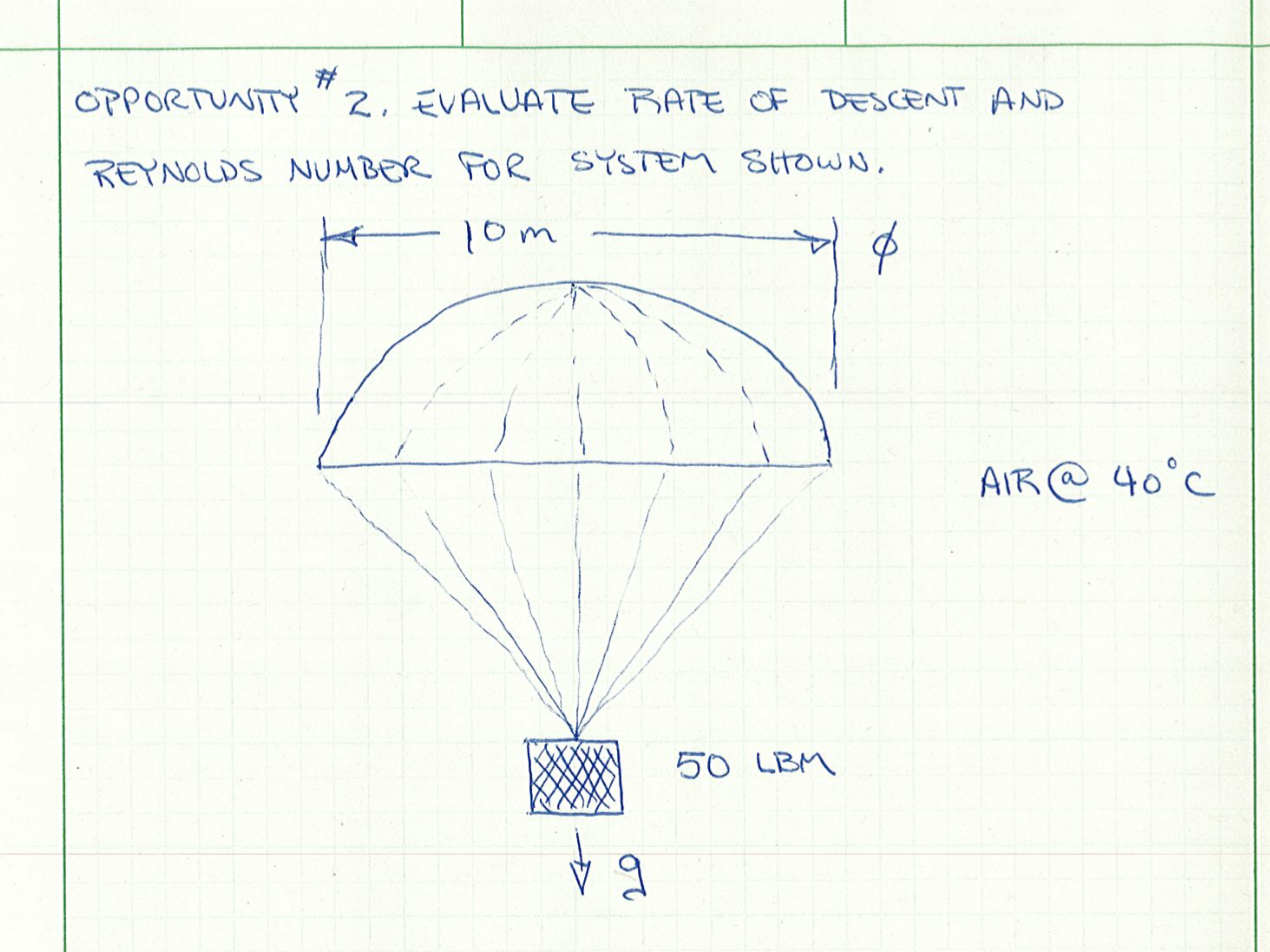 OPPORTUNITY #2. EVALUATE RATE OF DESCENT AND
REYNOLDS NUMBER FOR SYSTEM SHOWN.
10 m ϕ
AIR @ 40°C
50 LBM
g